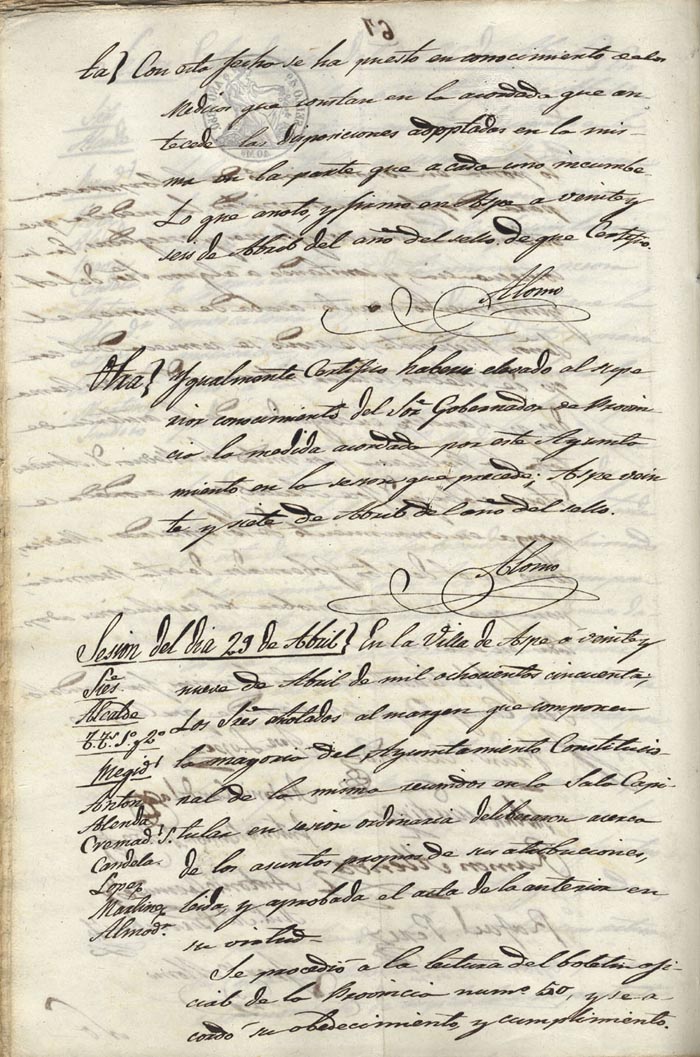 67
ta} Con esta fecha se ha puesto en conocimiento de los
Medicos que constan en la acordada que an-
tecede las disposiciones adopladas en la mis-
ma en la parte que a cada uno incumbe.
Lo que anoto, y firmo en Aspe a veinte y
seis de Abril del año del sello. de que Certifico.
Alomo
Otra} Ygualmente Certifico haberse elevado al supe-
rior conocimiento del Sor. Gobernador de Provin-
cia la medida acordada por este Ayunta-
miento en la sesion que precede; Aspe vein-
te y siete de Abril del año del sello.
Alomo
Sesion del dia 29 de Abril} En la Villa de Aspe a veinte y
Sres. nueve de Abril de mil ochocientos cincuenta;
Alcalde Los Sres. anotados al margen que componen
T.Tes. 1º y 2º la mayoria del Ayuntamiento Constitucio-
Regid.s nal de la misma reunidos en la Sala Capi-
Anton
Alenda tular en sesion ordinaria deliberaron acerca
Cremad.s
Candela de los asuntos propios de sus atribuciones,
Lopez
Martinez leida, y aprobada el acta de la anterior en
Almod.r su virtud-
Se procedió a la lectura del boletin ofi-
cial de la Provincia num.º 50, y se a-
cordó su obedecimiento, y cumplimiento.